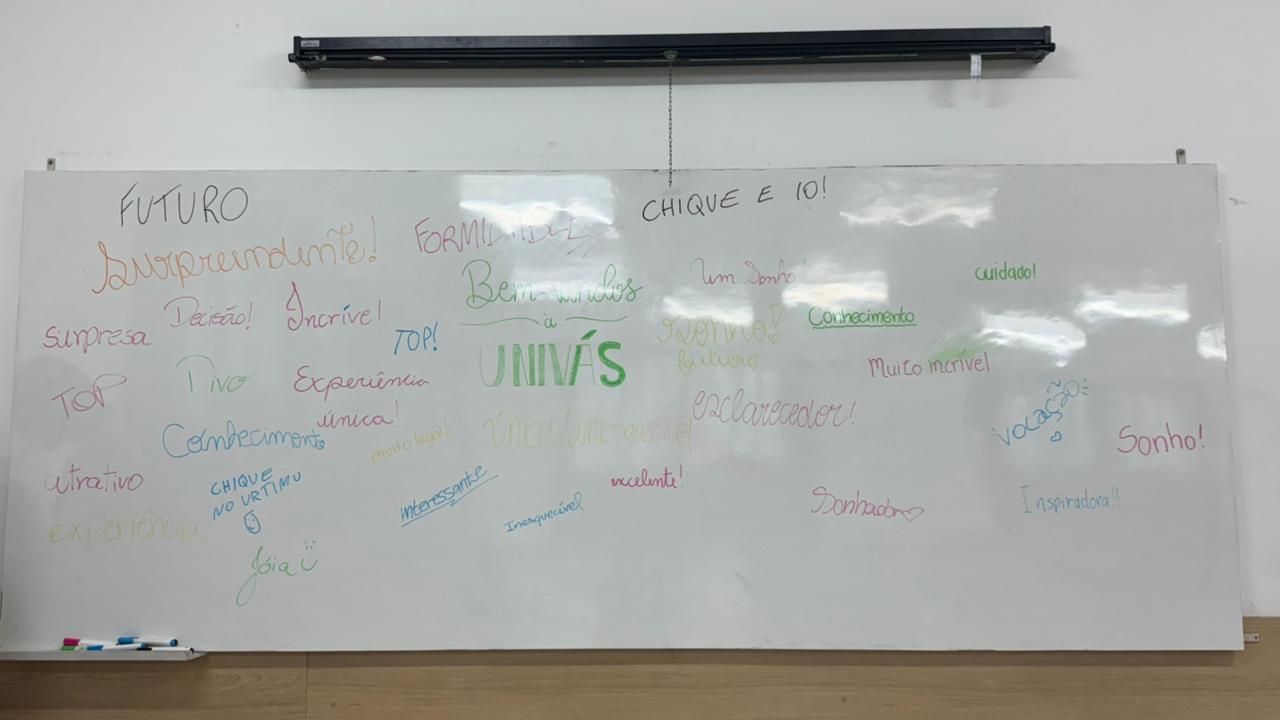 FUTURO
CHIQUE E 10!
Surpreendente!
Bem-vindos
à
UNIVÁS
Um Sonho!
cuidado!
Decisão!
Incrível
surpresa
TOP!
Sonho!
futuro
Conhecimento
Muito incrível
TOP
Divo
Experiência
única!
esclarecedor!
vocação
Sonho!
Conhecimento
muito legal!
Única/
excelente!
atrativo
CHIQUE
NO URTIMU
interessante
Inesquecível
Sonhador
Inspiradora!!
experiência
Jóia